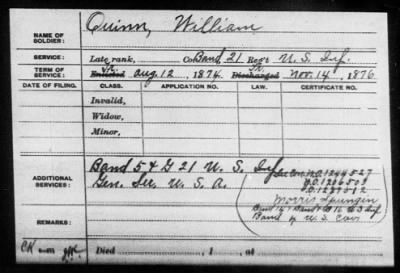 NAME OF SOLDIER: Quinn, William
SERVICE: Late rank, Co Band, 21 Reg't U. S. Inf.
TERM OF SERVICE: Enlisted Aug. 12, 1874. Discharged Nov. 14, 1876
DATE OF FILING. CLASS. APPLICATION NO. LAW. CERTIFICATE NO.
Invalid,
Widow,
Minor,
ADDITIONAL SERVICES: Band 5 & G 21 U. S. Inf
Gen. Ser. U. S. A.
Morris Spungin
Band 4 U.S. Cav
REMARKS:
Died , 1 , at